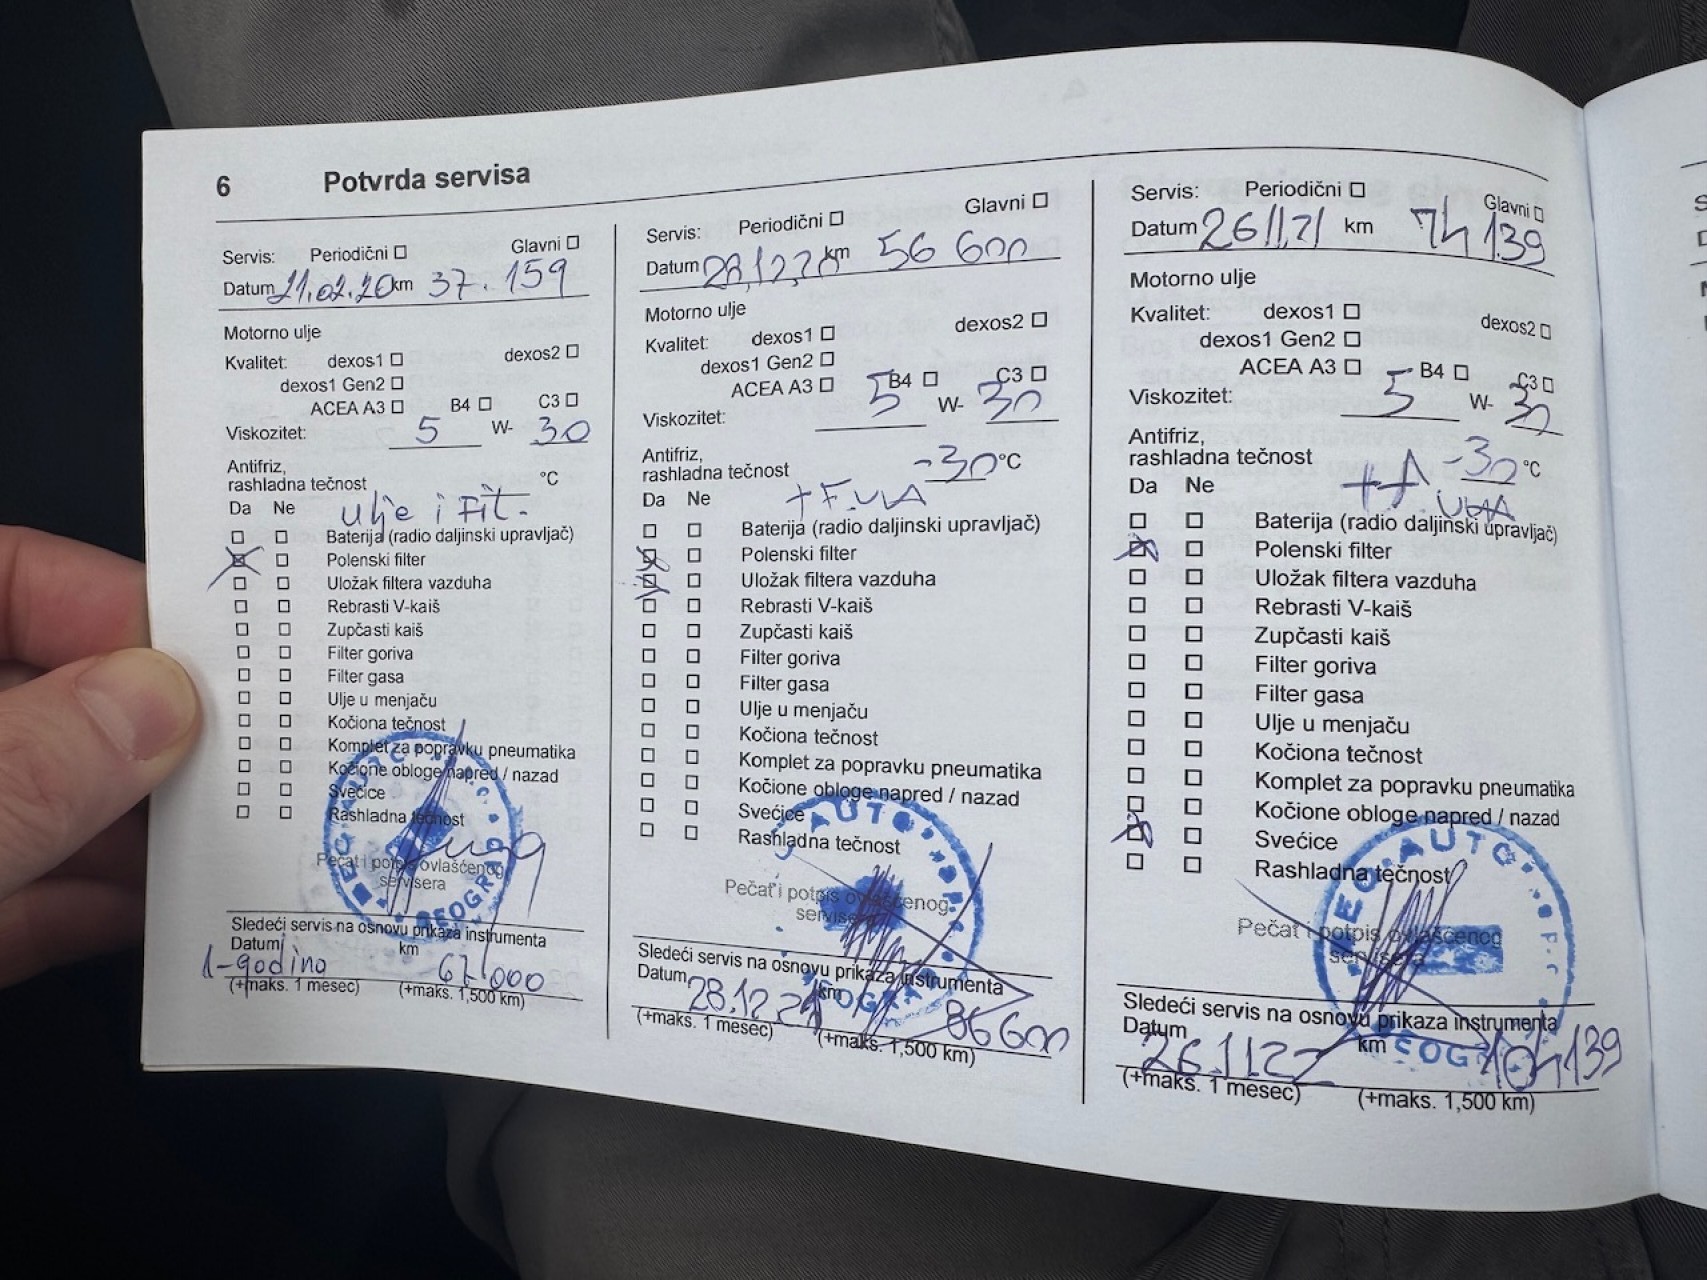 6 Potvrda servisa
Servis: Periodični Glavni
Datum 21.02.20 km 37.159
Motorno ulje
Kvalitet: dexos1 dexos2
dexos1 Gen2
ACEA A3 B4 C3
Viskozitet: 5 W- 30
Antifriz,
rashladna tečnost °C
Da Ne ulje i Fil.
Baterija (radio daljinski upravljač)
Polenski filter
Uložak filtera vazduha
Rebrasti V-kaiš
Zupčasti kaiš
Filter goriva
Filter gasa
Ulje u menjaču
Kočiona tečnost
Komplet za popravku pneumatika
Kočione obloge napred / nazad
Svećice
Rashladna tečnost
Pečat i potpis ovlašćenog
servisera
BEOGRAD
Sledeći servis na osnovu prikaza instrumenta
Datum km
1-godina 67.000
(+maks. 1 mesec) (+maks. 1,500 km)
Servis: Periodični Glavni
Datum 28,12,20 km 56 600
Motorno ulje
Kvalitet: dexos1 dexos2
dexos1 Gen2
ACEA A3 B4 C3
Viskozitet: 5 W- 30
Antifriz,
rashladna tečnost -30 °C
Da Ne
Baterija (radio daljinski upravljač)
Polenski filter
Uložak filtera vazduha
Rebrasti V-kaiš
Zupčasti kaiš
Filter goriva
Filter gasa
Ulje u menjaču
Kočiona tečnost
Komplet za popravku pneumatika
Kočione obloge napred / nazad
Svećice
Rashladna tečnost
AUTO
Pečat i potpis ovlašćenog
servisera
Sledeći servis na osnovu prikaza instrumenta
Datum 28.12.21 km 86 600
(+maks. 1 mesec) (+maks. 1,500 km)
Servis: Periodični Glavni
Datum 26 11,21 km 74 139
Motorno ulje
Kvalitet: dexos1 dexos2
dexos1 Gen2
ACEA A3 B4 C3
Viskozitet: 5 W- 30
Antifriz,
rashladna tečnost -30 °C
Da Ne
Baterija (radio daljinski upravljač)
Polenski filter
Uložak filtera vazduha
Rebrasti V-kaiš
Zupčasti kaiš
Filter goriva
Filter gasa
Ulje u menjaču
Kočiona tečnost
Komplet za popravku pneumatika
Kočione obloge napred / nazad
Svećice
Rashladna tečnost
AUTO
Pečat i potpis ovlašćenog
servisera
Sledeći servis na osnovu prikaza instrumenta
Datum 26.11.22 km 104 139
(+maks. 1 mesec) (+maks. 1,500 km)